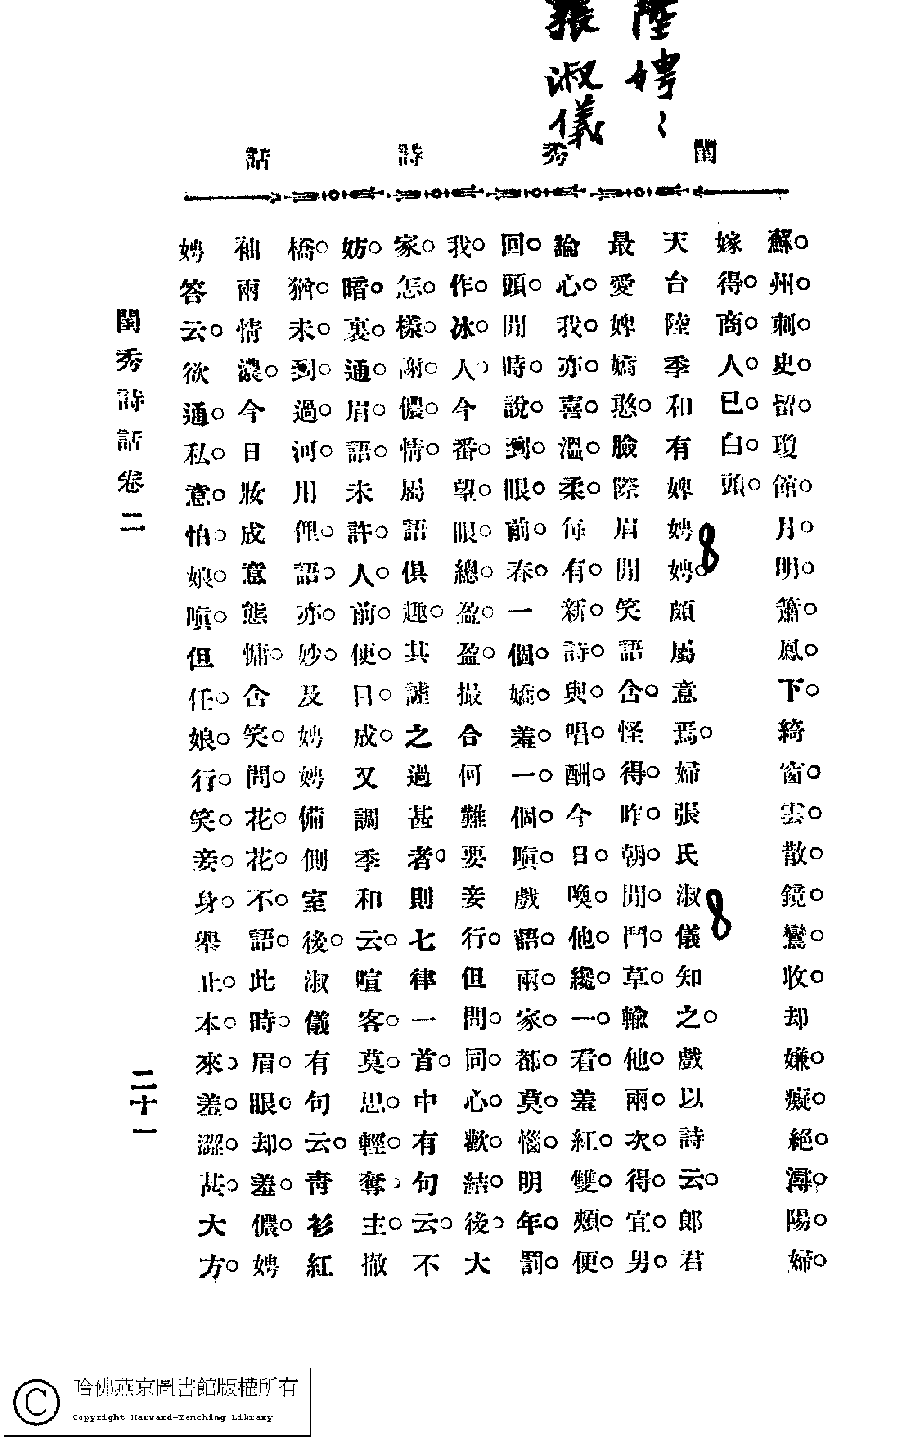 陸娉〻
張淑儀
閨秀詩話
蘇。州。刺。史。留。瓊館。月。明。簫。鳳。下。綺窗。雲。散。鏡。鸞。收。却嫌。癡。絕。潯。陽。婦。
嫁。得。商。人。已。白。頭。
天台陸季和有婢娉娉。頗屬意焉。婦張氏淑儀知之。戲以詩云。郎君
最愛婢嬌憨。臉際眉間笑語含。怪得。昨。朝。聞。鬥。草。輸他。兩。次。得。宜。男。
論心。我亦。喜。溫。柔。每有。新。詩。與。唱。酬。今日。喚。他。纔。一。看。羞紅。雙。頰。便。
回。頭。閒時。說。到。眼。前。春。一個。嬌。羞。一。個。嗔。戲語。兩。家。都。莫。惱。明年。罰。
我。作。冰。人。今番。望。眼總。盈。盈。撮合何難要妾行。但問。同。心。歡。結。後。大
家。怎。樣。謝。儂。情。屬語俱趣。其謔之過甚者。則七律一首。中有句云。不
妨。暗。裏。通。眉語。未許。人。前。便。目。成。又調季和云。喧客。莫。思。輕。奪。主。撤
橋。猶。未。到。過河。用俚。語。亦。妙。及娉娉備側室後。淑儀有句云。青衫紅
袖兩情濃。今日妝成意態慵。含笑。問。花。花。不。語。此時。眉。眼。却。羞。儂。娉
娉答云。欲通。私。意。怕。娘。嗔。但任。娘。行。笑。妾。身。舉止。本。來。羞。澀。甚。大方。
閨秀詩話卷二
二十一
8
8
哈佛燕京圖書館版權所有
Copyright Harvard-Yenching Library